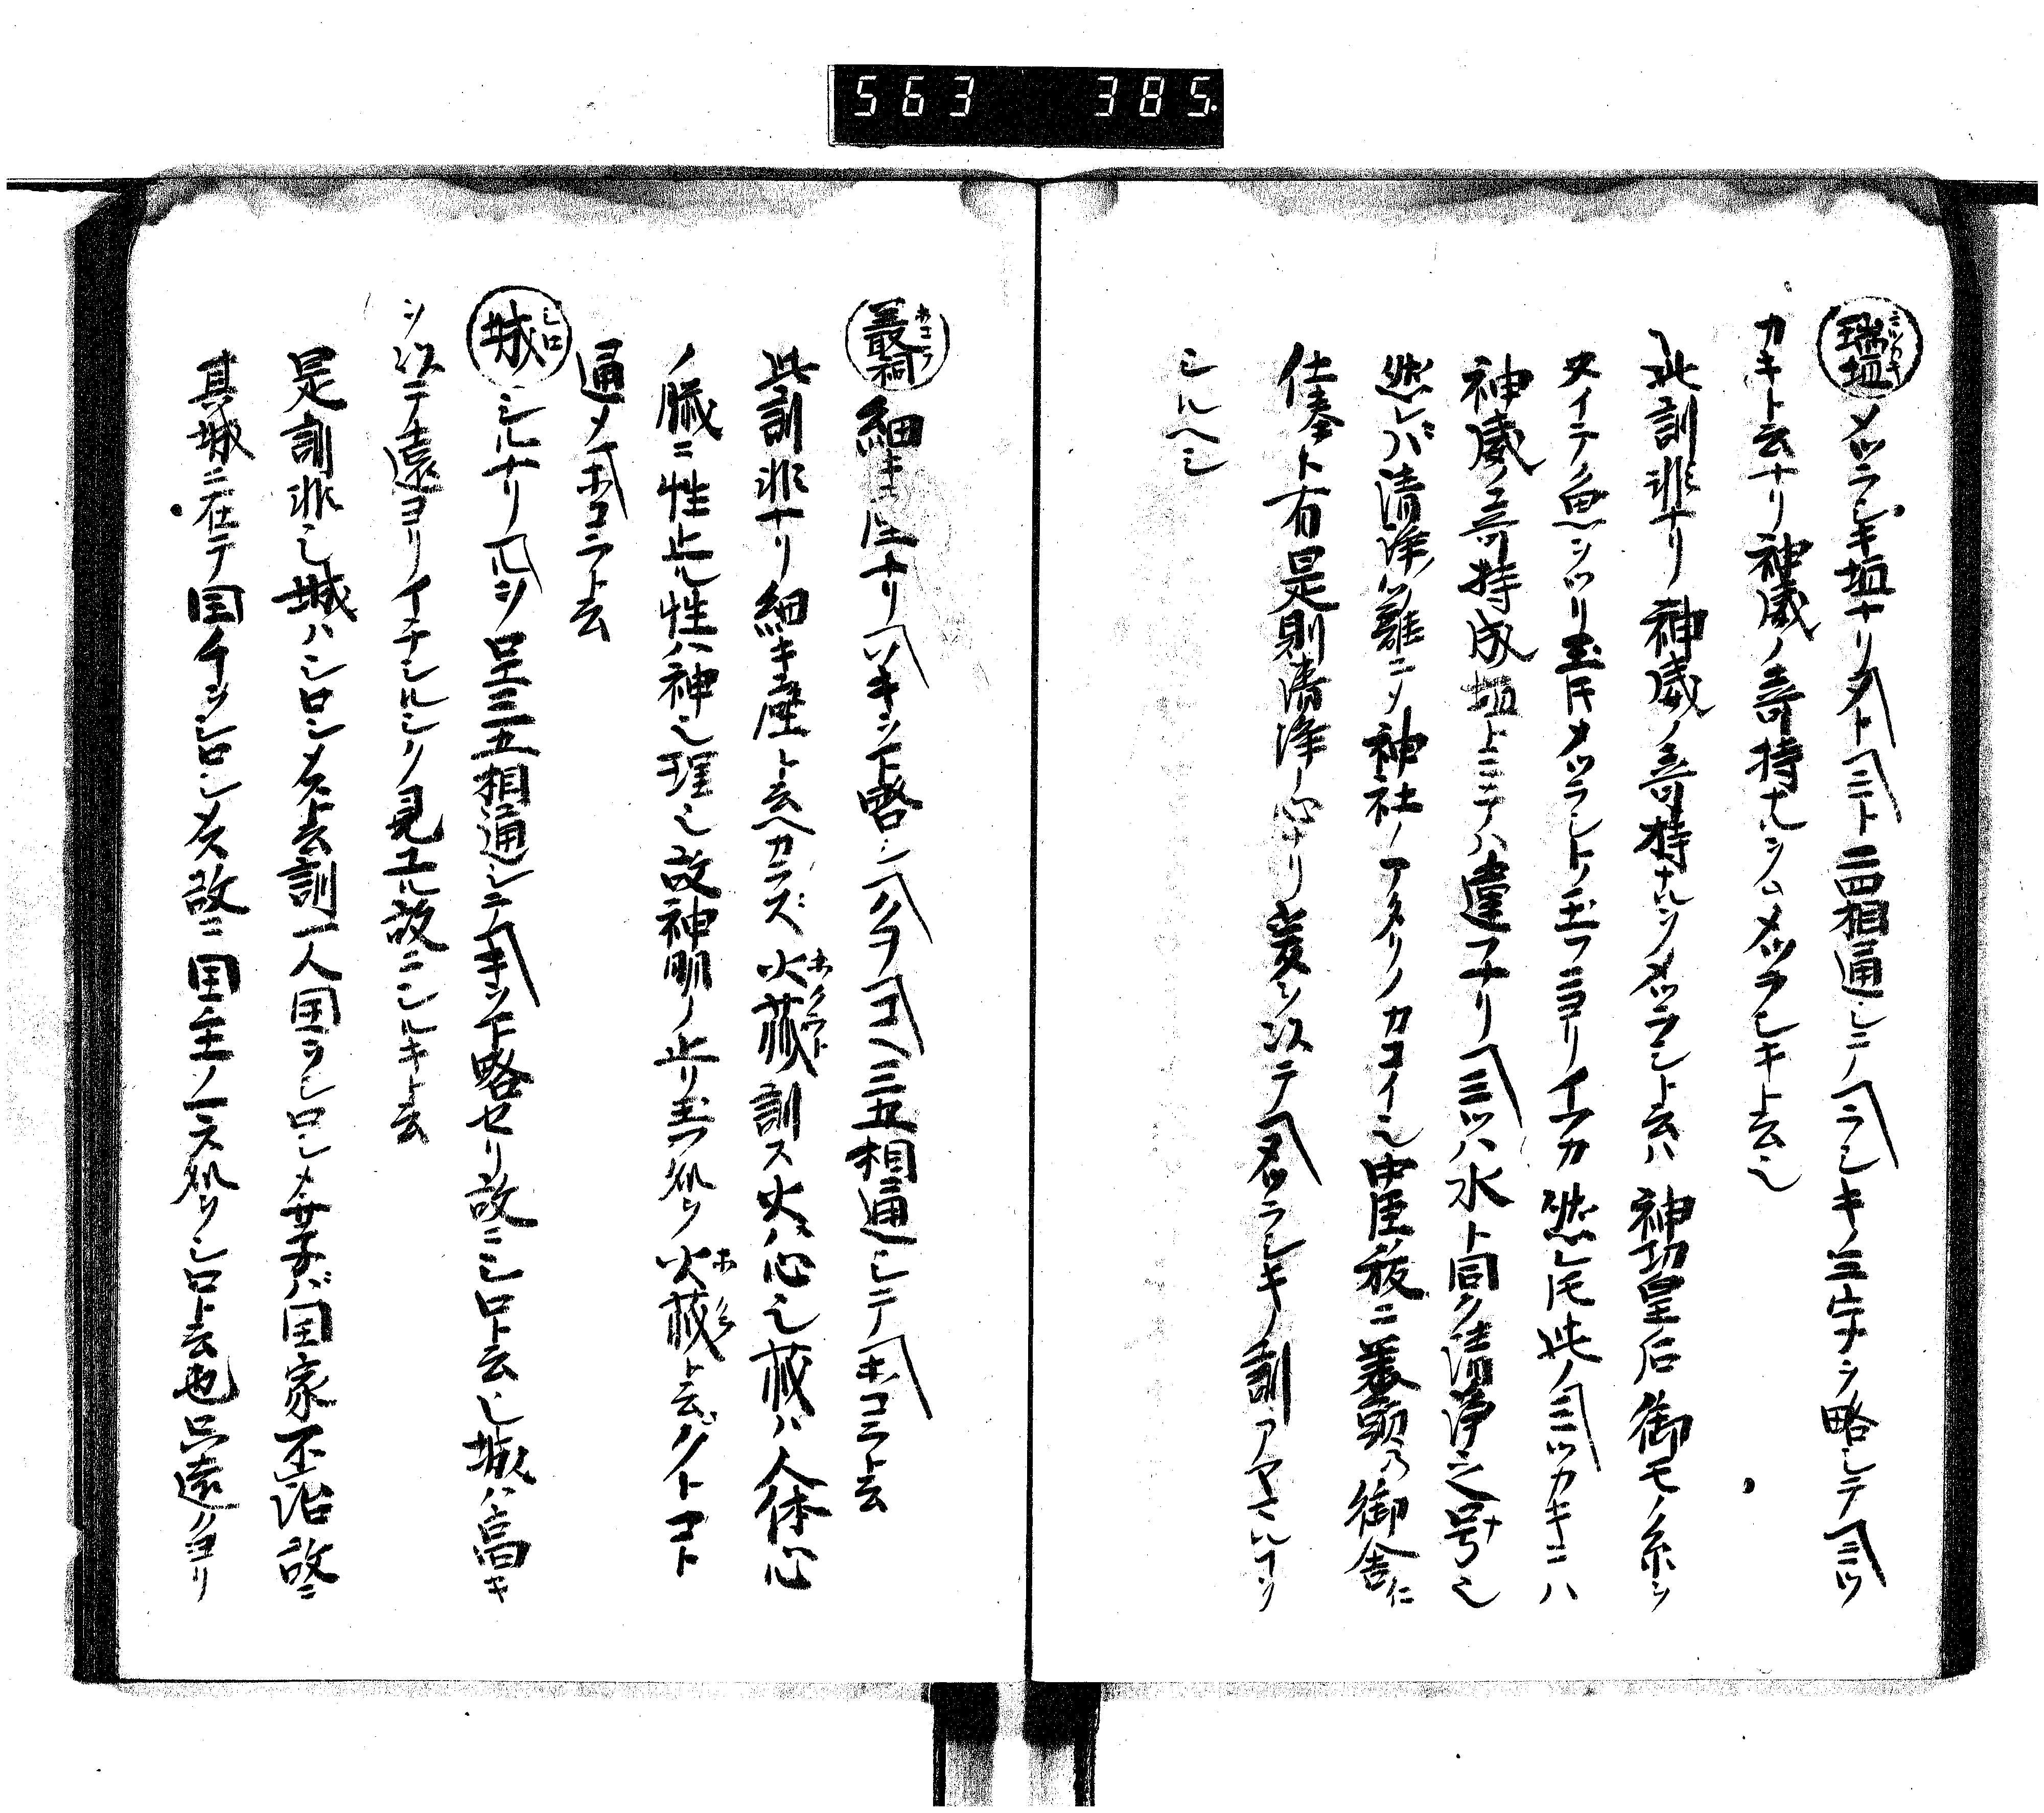 563 385.
瑞垣 ミツカキ メツラシキ垣ナリタト ミト 二四相通シニノ ラシキノ三字ヲ略シテ ミツ
カキト云ナリ神威ノ奇持ナルシムメツラシキト云也
此訓非ナリ神威ノ奇持ナルヲメツラシト云ハ神功皇后御モノ糸ヲ
ヌイテ魚ヲツリ玉ヒメツラシトノ玉フニヨリイフカ然レ𪜈此ノミツカキニハ
神威ノ奇持成垣ト云テハ違フナリ ミツハ水ト同ク清浄之号也
然レバ清浄ノ籬ニメ神社ノアタリノカコイ也中臣祓ニ美頭乃御舎仁
仕奉ト有是則清浄ノ心ナリ爰ヲ以テ メツラシキノ訓アヤマルコヲ
シルヘシ
叢祠 ホコラ 細キ座ナリ ソキヲ下略シ ハヲ コヘ三五相通シテ ホコラト云
此訓非ナリ細キ座ト云ヘカラズ火蔵 ホクラト訓ス火ハ心也蔵ハ人体心
ノ臓ニ性止ル性ハ神也理也故神明ノ止リ玉フ処ヲ火蔵 ホクラト云ハクトコト
通メ ホコラト云
城 シロ シルナリ ルヲ ロエ三五相通シテ キヲ下略セリ故ニシロト云也城ハ高キ
ヲ以テ遠ヨリイチシルシク見エル故ニシルキト云
是訓非也城ハシロシメスト云訓一人国ヲシロシメサネバ国家不治故ニ
其城ニ在テ国郡ヲシロシメス故ニ国主ノマス処ヲシロト云也只遠クヨリ